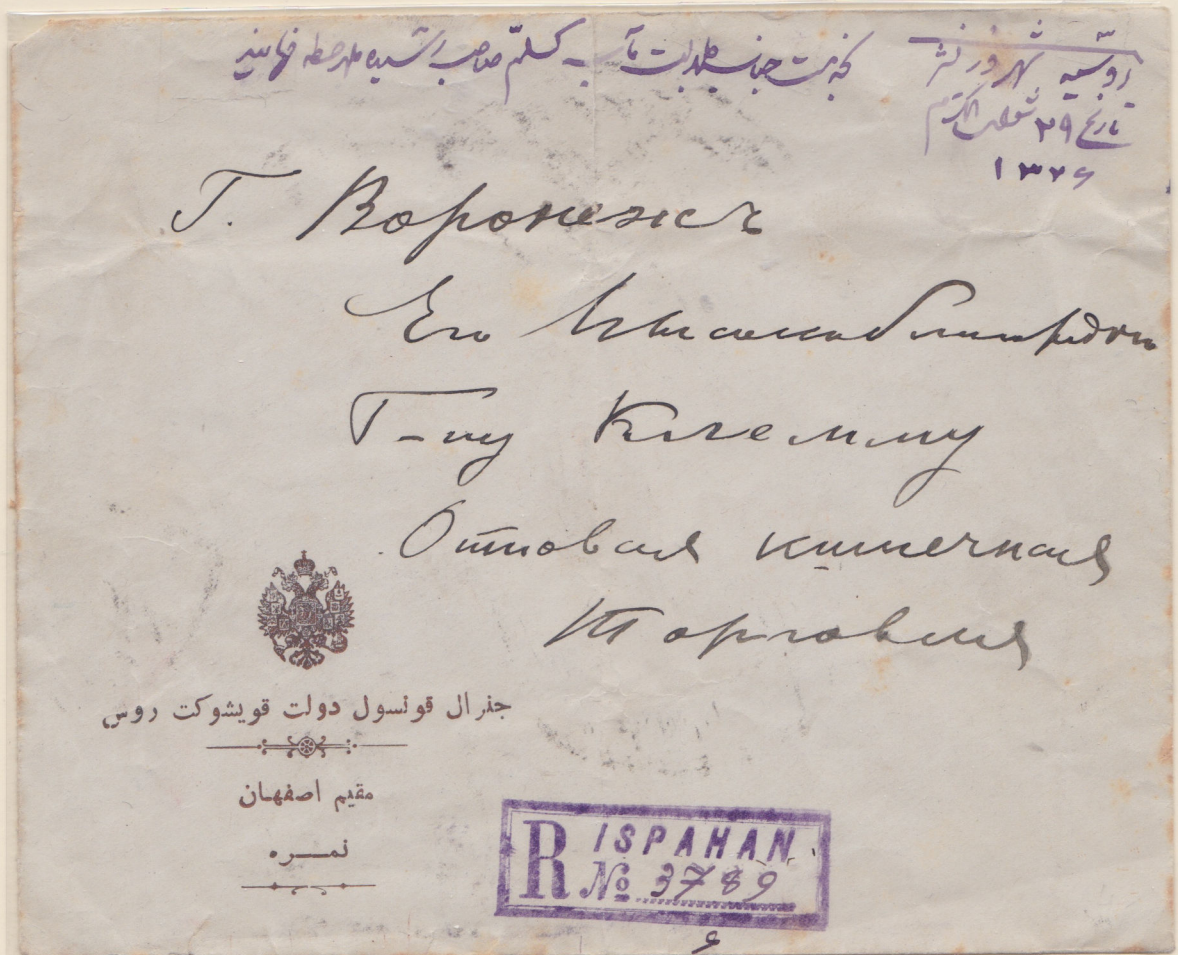 روسیه شهر ورنژ
تاریخ ۲۹ شعبان
۱۳۲۶
г. Воронежъ
Его Высокоблагородію
Г-ну Клемму
Оптовая кишечная
торговля
جنرال قونسول دولت قویشوکت روس
مقیم اصفهان
نمره
R ISPAHAN
№ 3789